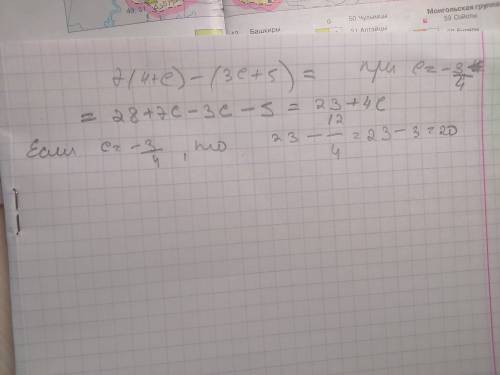 Монгольская группа
50 Чулымцы
59 Сойоты
Башкиры
51 Алтайцы
7(4+c) - (3c+5) = при c = -3/4
= 28 + 7c - 3c - 5 = 23 + 4c
Если c = -3/4, то 23 - 12/4 = 23 - 3 = 20